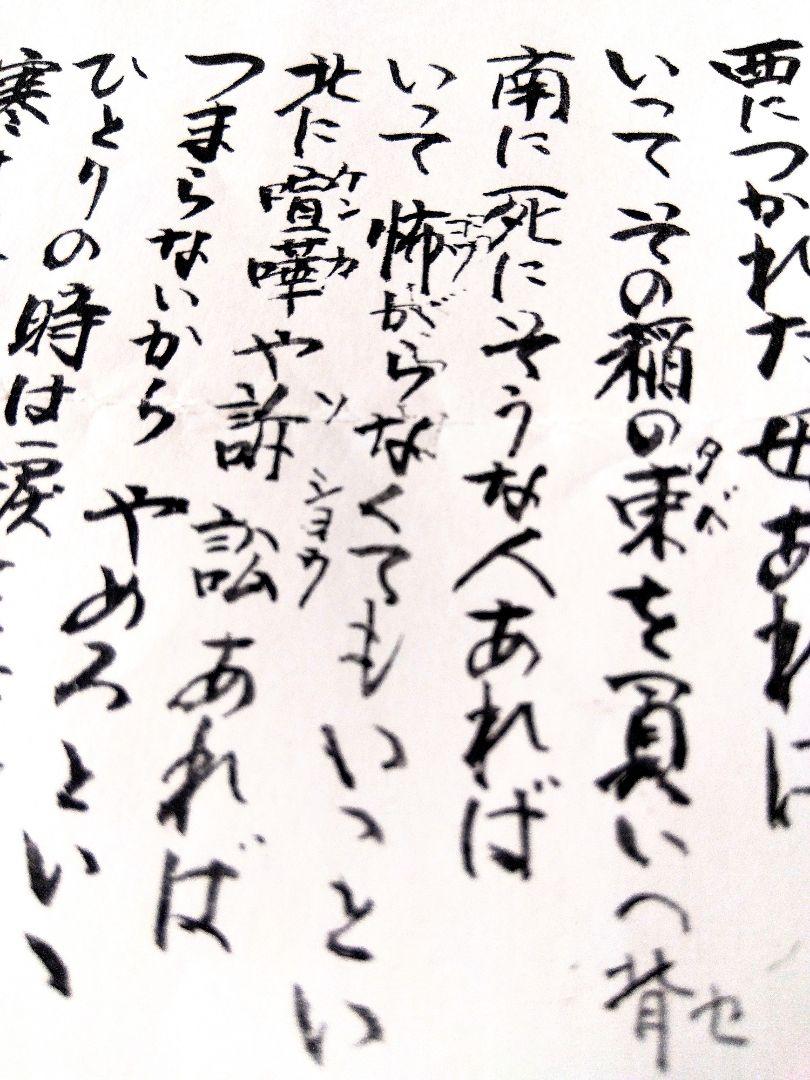 西につかれた 母あれば
いって その稲の束を負い(背
タバ
セ
南に死にそうな人あれば
いって 怖がらなくても いゝとい
コワ
北に喧嘩や訴訟あれば
ケンカ
ソショウ
つまらないから やめろといゝ
ひとりの時は涙
寒